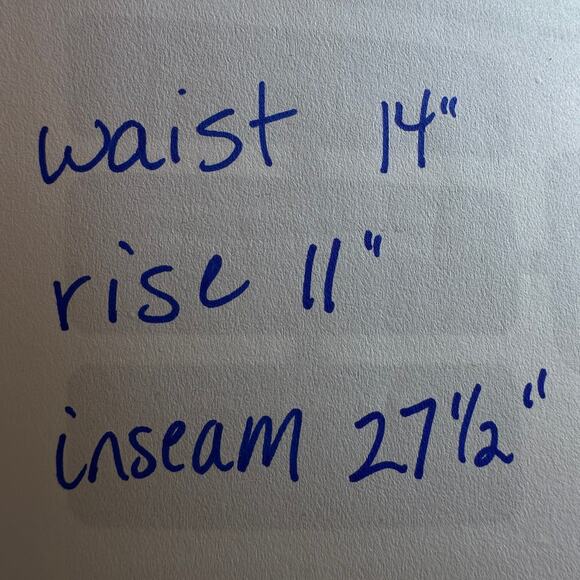 waist 14"
rise 11"
inseam 27½"